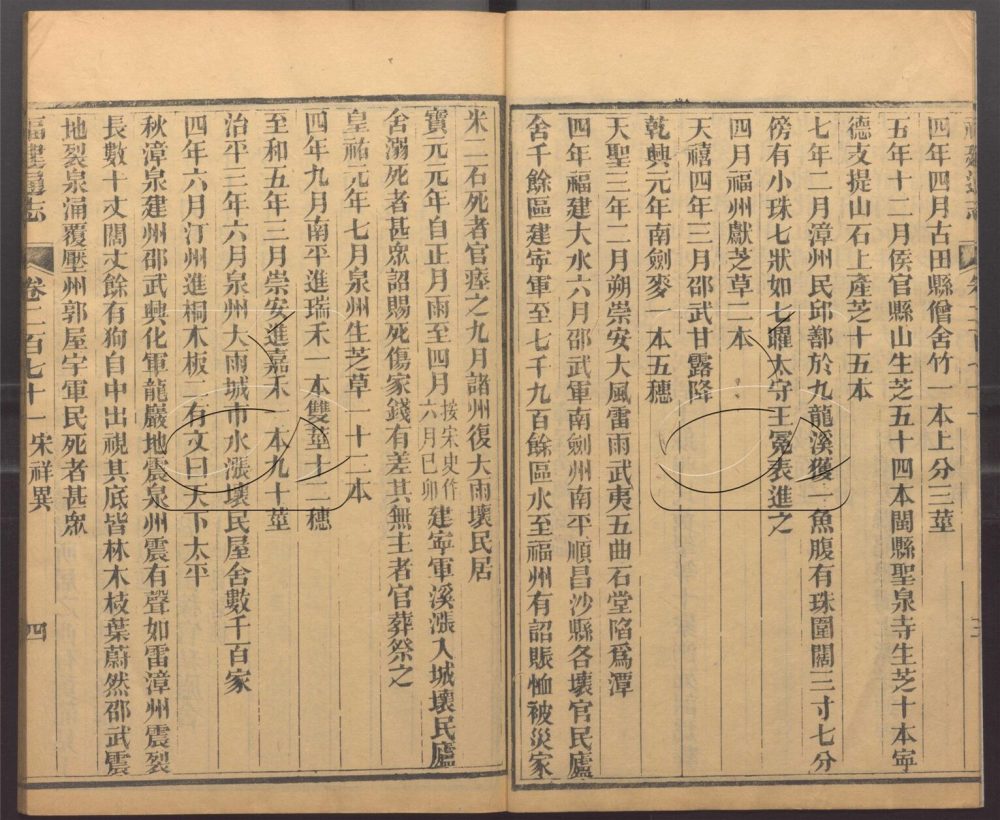 四年四月古田縣僧舍竹一本上分三莖
五年十二月侯官縣山生芝五十四本閩縣聖泉寺生芝十本寧
德支提山石上產芝十五本
七年二月漳州民邱鄯於九龍溪獲一魚腹有珠圍闊三寸七分
傍有小珠七狀如七曜太守王冕表進之
四月福州獻芝草二本
天禧四年三月邵武甘露降
乾興元年南劍麥一本五穗
天聖三年二月朔崇安大風雷雨武夷五曲石堂陷爲潭
四年福建大水六月邵武軍南劍州南平順昌沙縣各壞官民廬
舍千餘區建寧軍至七千九百餘區水至福州有詔賑恤被災家
米二石死者官瘞之九月諸州復大雨壞民居
寶元元年自正月雨至四月按宋史作六月己卯建寧軍溪漲入城壞民廬
舍溺死者甚眾詔賜死傷家錢有差其無主者官葬祭之
皇祐元年七月泉州生芝草一十二本
四年九月南平進瑞禾一本雙莖十二穗
至和五年三月崇安進嘉禾一本九十莖
治平三年六月泉州大雨城市水漲壞民屋舍數千百家
四年六月汀州進桐木板二有文曰天下太平
秋漳泉建州邵武興化軍龍巖地震泉州震有聲如雷漳州震裂
長數十丈闊丈餘有狗自中出視其底皆林木枝葉蔚然邵武震
地裂泉涌覆壓州郭屋宇軍民死者甚眾
福建通志 卷二百七十一 宋祥異 四